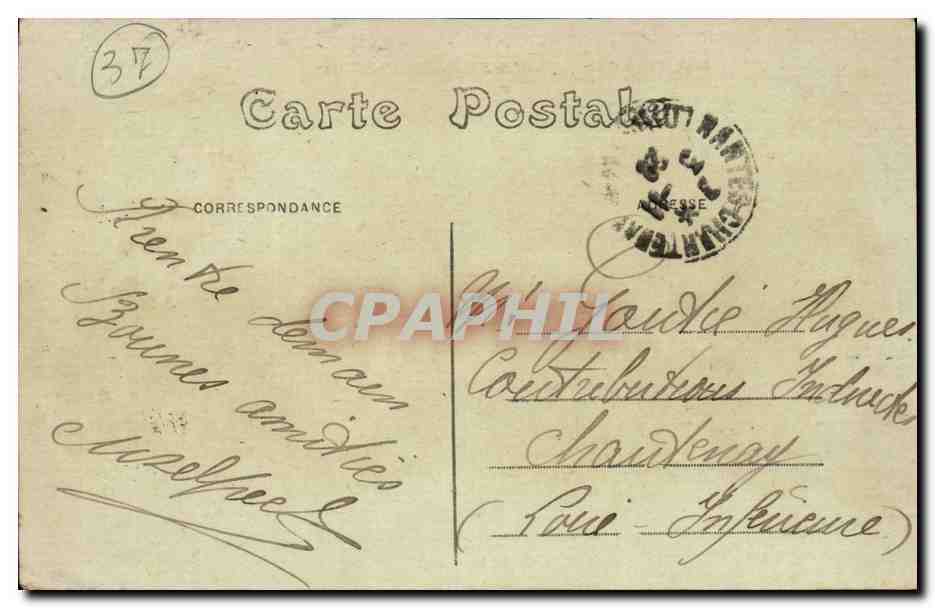 37
Carte Postale
NANTES-CHANTENAY
CORRESPONDANCE
ADRESSE
rentre demain
Bonnes amitiés
CPAPHIL
Hugues
Contributions Indirectes
Chantenay
(Loire-Inférieure)